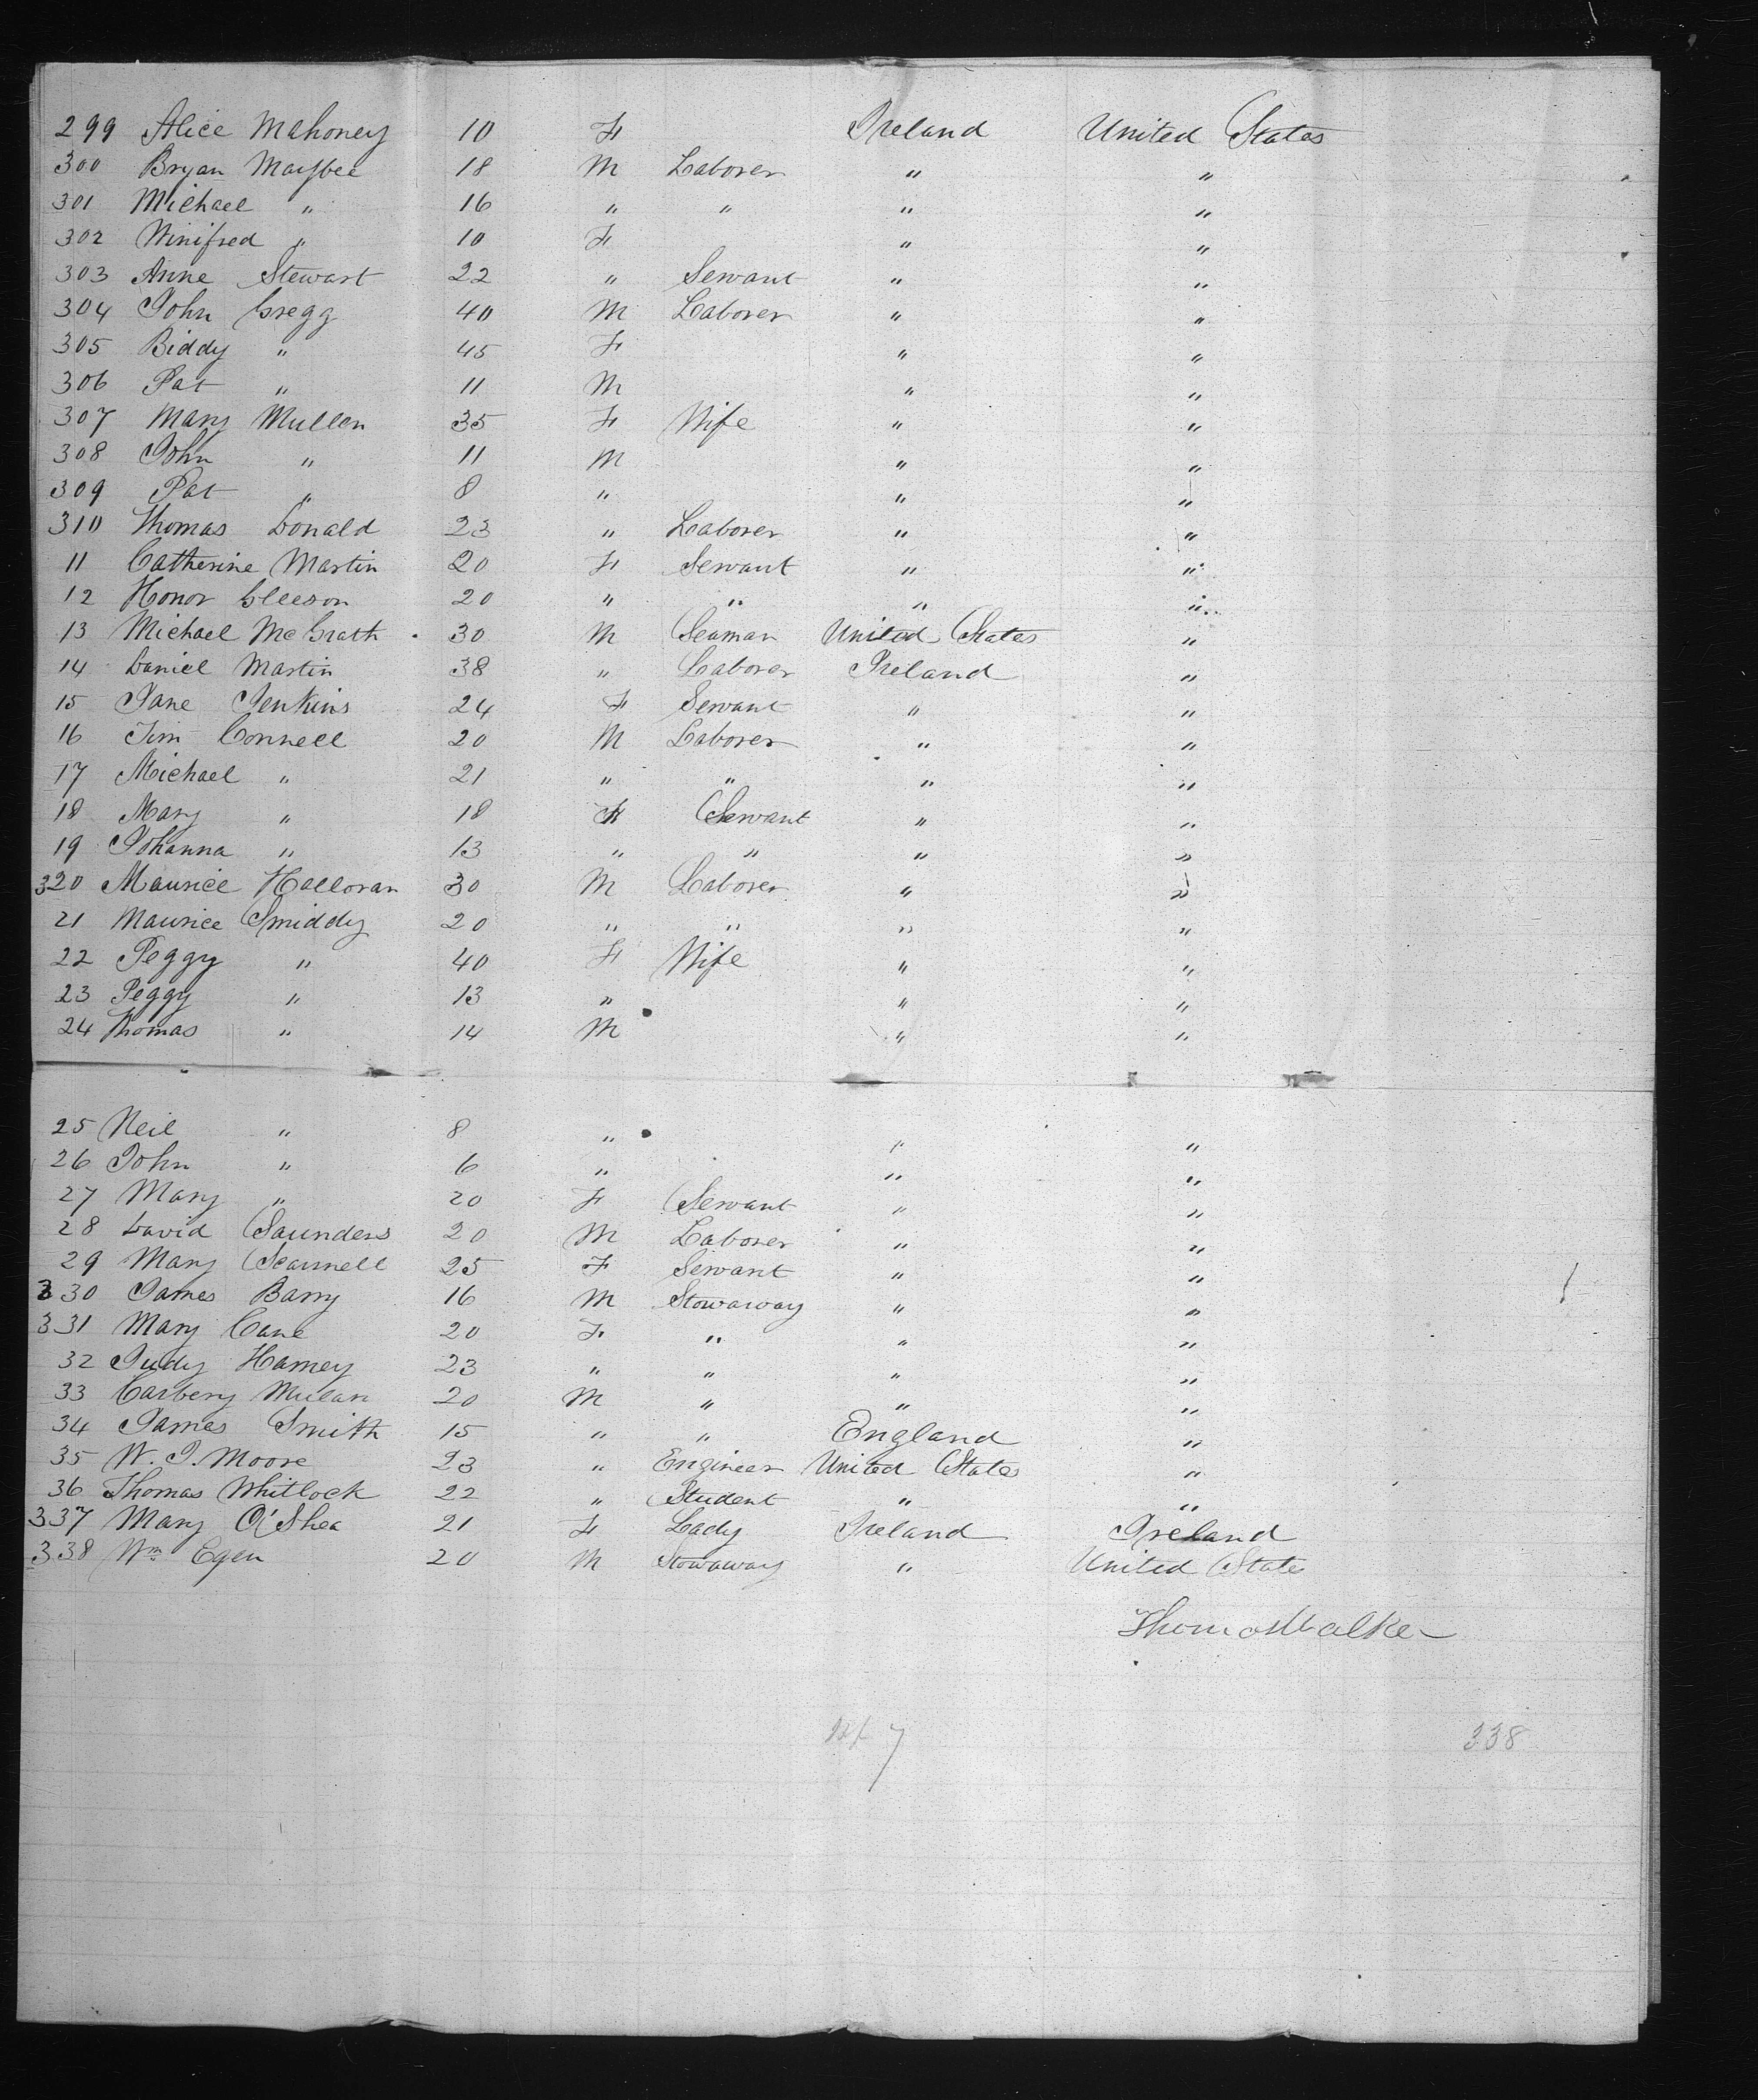 299 Alice Mahoney 10 F Ireland United States
300 Bryan Maybee 18 M Laborer " "
301 Michael " 16 " " " "
302 Winifred " 10 F " "
303 Anne Stewart 22 " Servant " "
304 John Gregg 40 M Laborer " "
305 Biddy " 45 F " "
306 Pat " 11 M " "
307 Mary Mullen 35 F Wife " "
308 John " 11 M " "
309 Pat " 8 " " "
310 Thomas Donald 23 " Laborer " "
11 Catherine Martin 20 F Servant " "
12 Honor Gleeson 20 " " " "
13 Michael McGrath 30 M Seaman United States "
14 Daniel Martin 38 " Laborer Ireland "
15 Jane Jenkins 24 F Servant " "
16 Tim Connell 20 M Laborer " "
17 Michael " 21 " " " "
18 Mary " 18 F Servant " "
19 Johanna " 13 " " " "
320 Maurice Halloran 30 M Laborer " "
21 Maurice Smiddy 20 " " " "
22 Peggy " 40 F Wife " "
23 Peggy " 13 " " "
24 Thomas " 14 M " "
25 Neil " 8 " " "
26 John " 6 " " "
27 Mary " 20 F Servant " "
28 David Saunders 20 M Laborer " "
29 Mary Scannell 25 F Servant " "
330 James Barry 16 M Stowaway " "
331 Mary Cane 20 F " " "
32 Judy Harney 23 " " " "
33 Carbery Mulan 20 M " " "
34 James Smith 15 " " England "
35 W. J. Moore 23 " Engineer United States "
36 Thomas Whitlock 22 " Student " "
337 Mary O'Shea 21 F Lady Ireland Ireland
338 Wm Egen 20 M Stowaway " United State
Thomas Walker
7 338